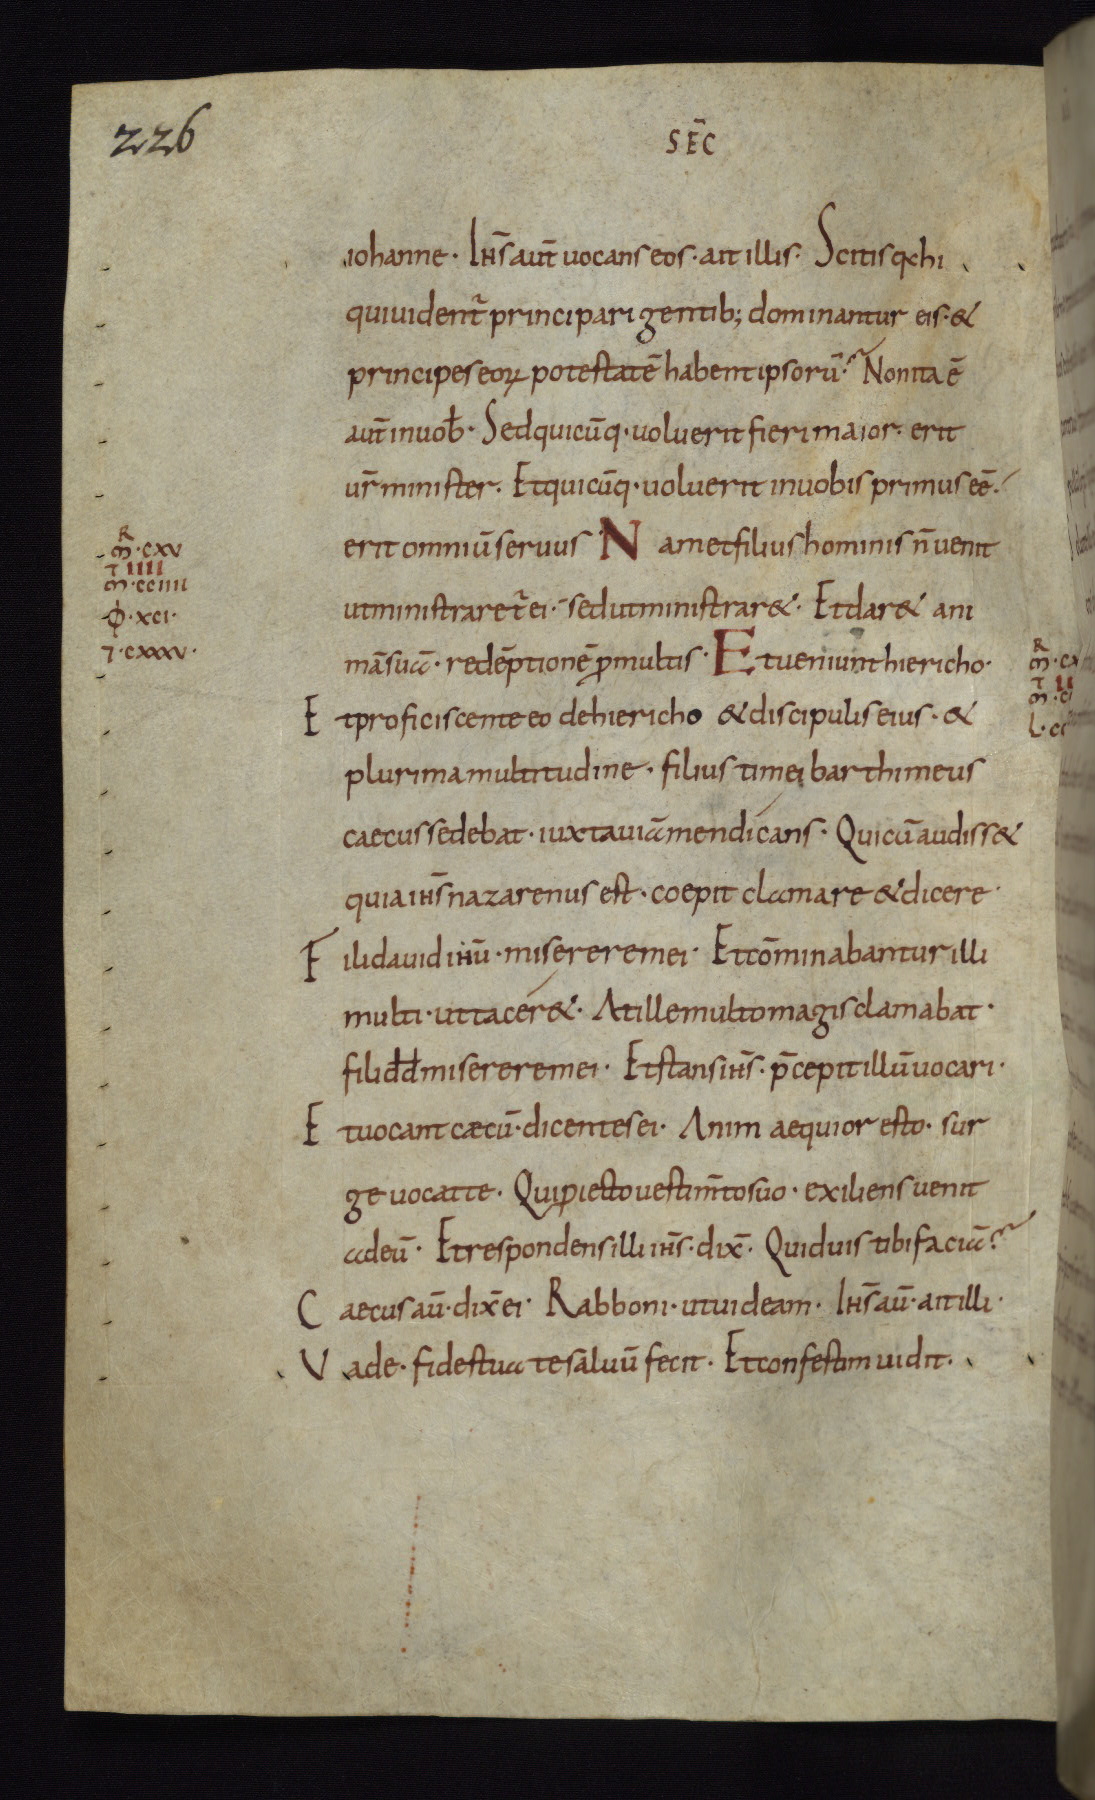 226
SEC̄
iohanne · Ih̄s aut̄ uocans eos · ait illis · Scitis q̄ hi
qui uident̄ principari gentib; dominantur eis · &
principes eoꝝ potestatē habent ipsorū · Non ita ē
aut̄ in uob̄ · Sed quicūq · uoluerit fieri maior · erit
ur̄ minister · Et quicūq · uoluerit in uobis primus eē ·
erit omniū seruus · Nam et filius hominis n̄ uenit
ut ministraret̄ ei · sed ut ministrar& · Et dar& ani
mā suā · redēptionē ꝓ multis · Et ueniunt hiericho ·
Et proficiscente eo de hiericho & discipulis eius · &
plurima multitudine · filius timei bar thimeus
caecus sedebat · iuxta uiā mendicans · Qui cū audiss&
quia ih̄s nazarenus est · coepit clamare & dicere ·
Fili dauid ih̄u · miserere mei · Et cōminabantur illi
multi · ut tacer& · At ille multo magis clamabat ·
fili dd̄ miserere mei · Et stans ih̄s · p̄cepit illū uocari ·
Et uocant cæcū · dicentes ei · Anim aequior esto · sur
ge uocat te · Qui ꝓiecto uestim̄to suo · exiliens uenit
ad eū · Et respondens illi ih̄s · dix̄ · Quid uis tibi faciā ?
Caecus aū · dix̄ ei · Rabboni · ut uideam · Ih̄s aū · ait illi ·
Vade · fides tua te saluū fecit · Et confestim uidit ·
R
m̄ · cxv
T IIII
m̄ · cciiii
ϕ · xci ·
⁊ · cxxxv ·